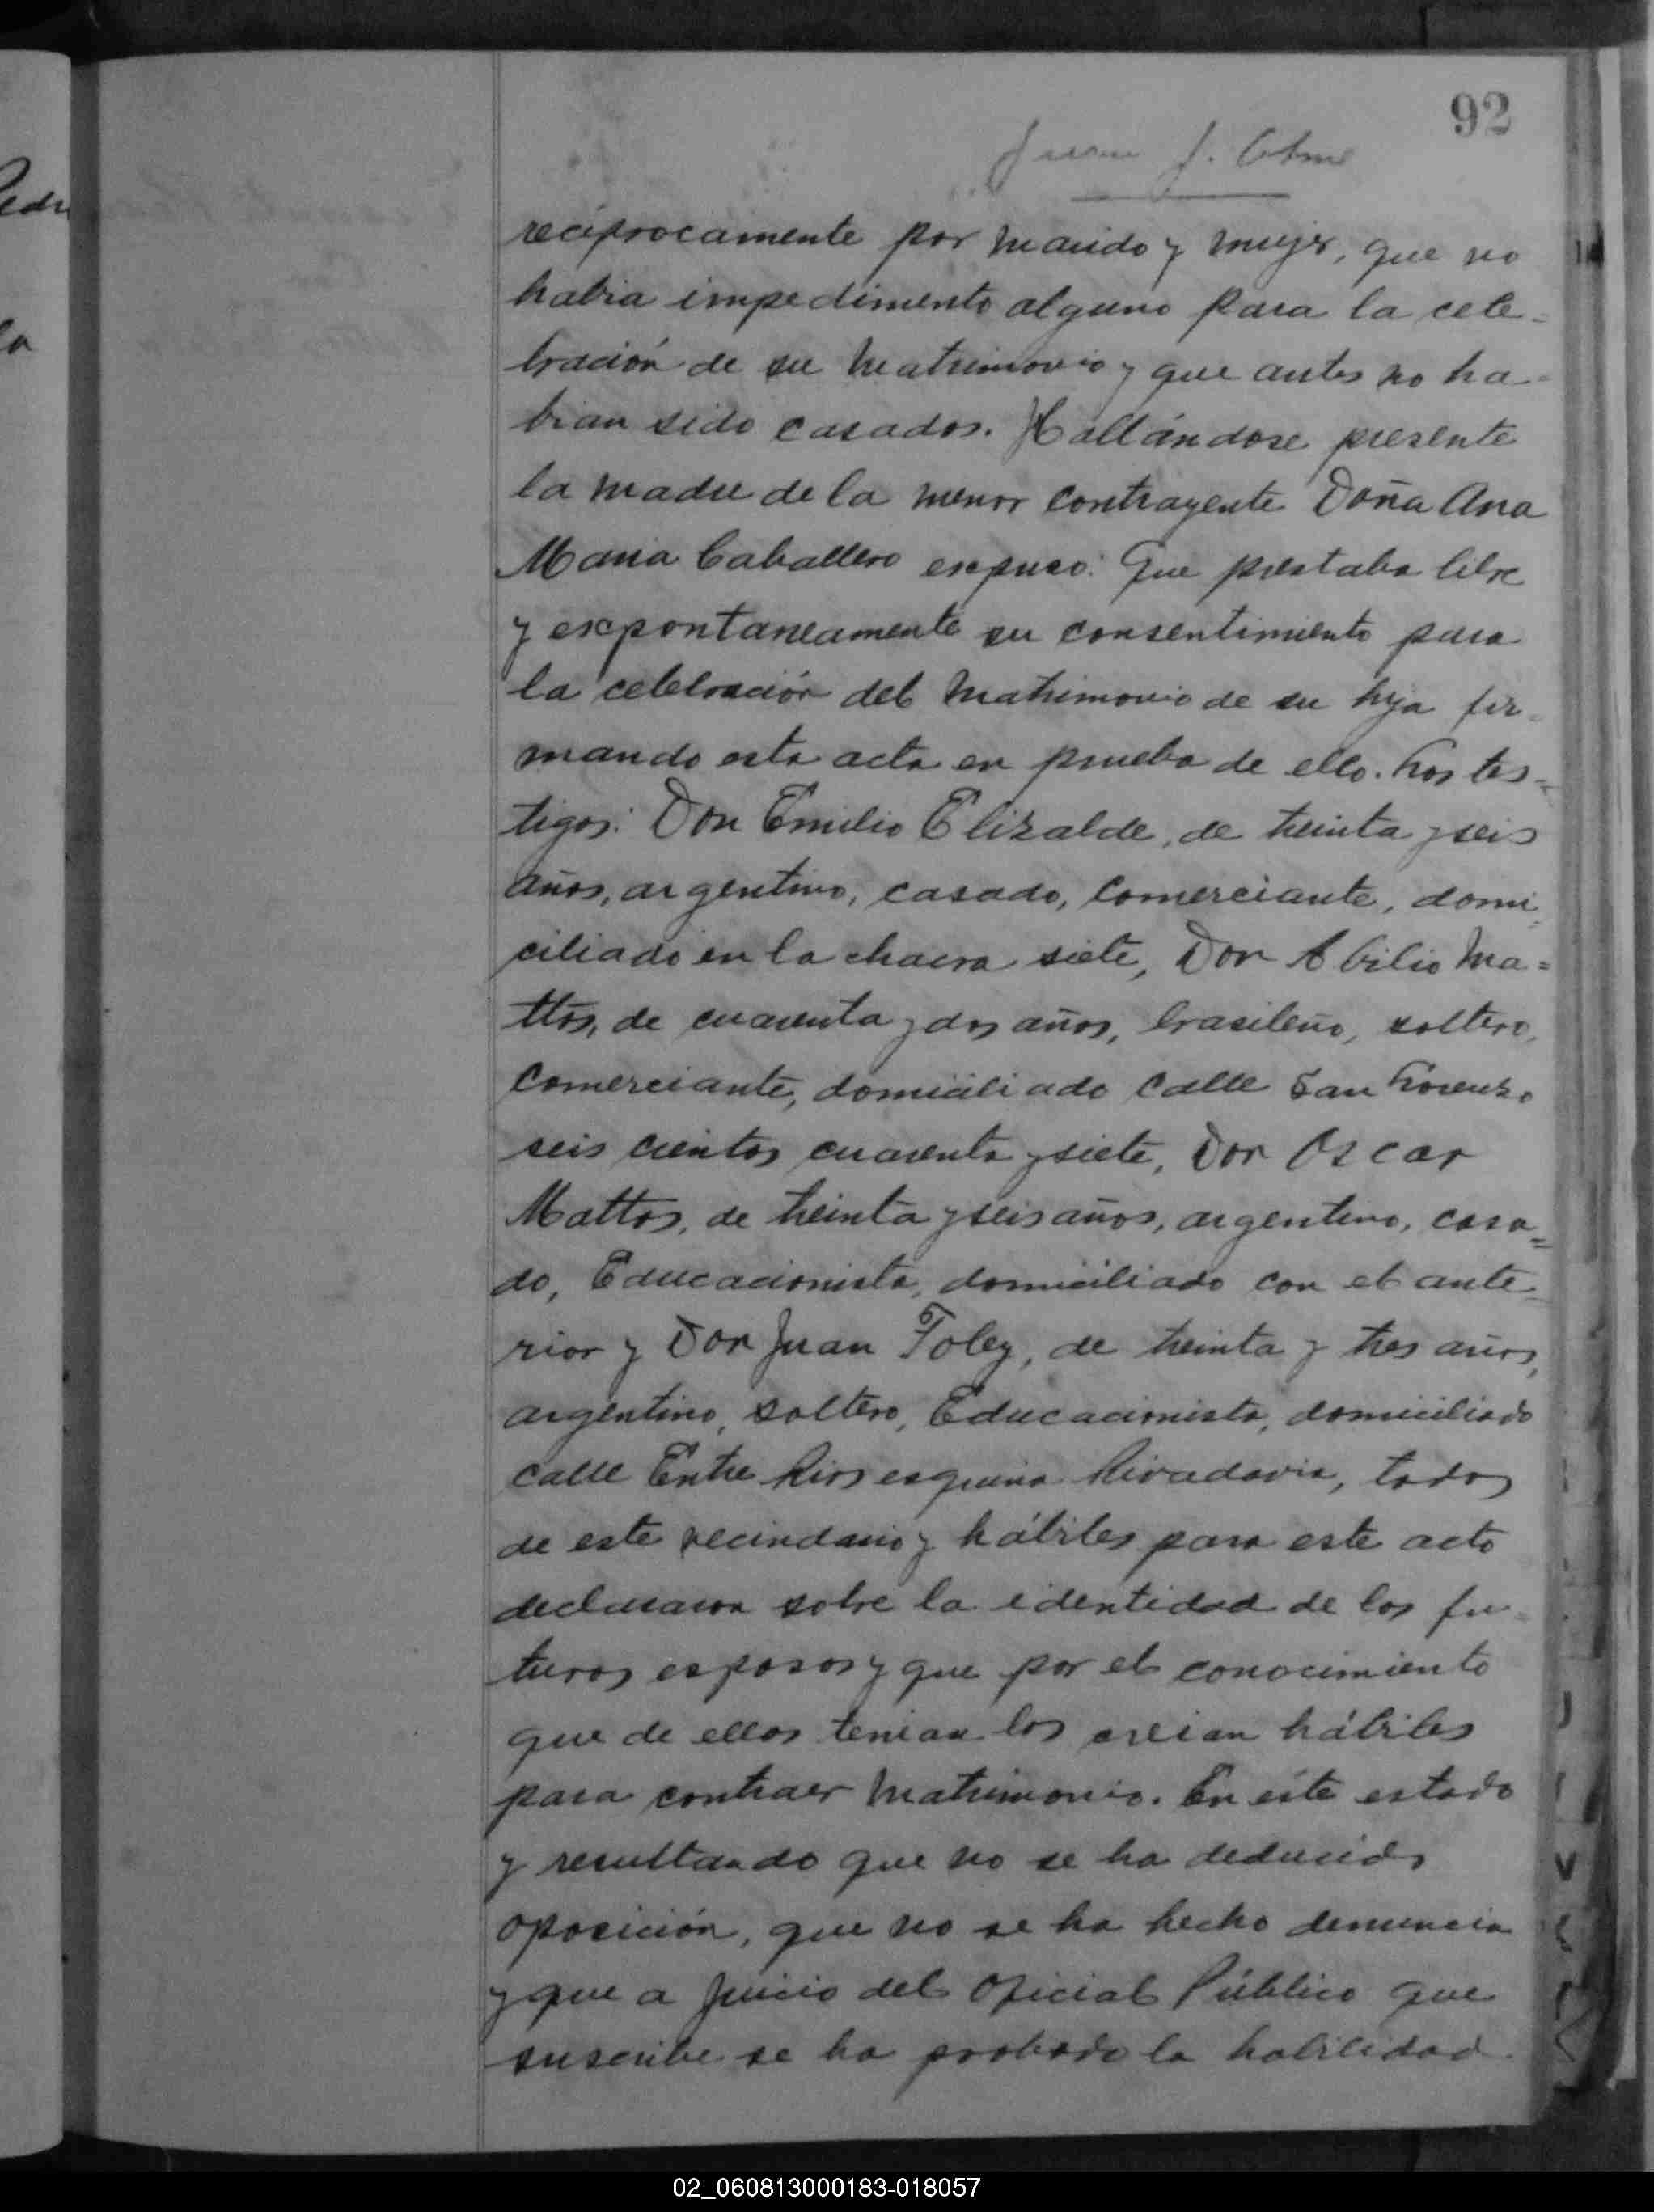 92
Juan J.
reciprocamente por marido y mujer, que no
habia impedimento alguno para la cele-
bración de su matrimonio y que antes no ha-
bian sido casados. Hallándose presente
la madre de la menor contrayente Doña Ana
Maria Caballero expuso: Que prestaba libre
y expontaneamente su consentimiento para
la celebración del matrimonio de su hija fir-
mando esta acta en prueba de ello. Los tes-
tigos: Don Emilio Elizalde, de treinta y seis
años, argentino, casado, comerciante, domi-
ciliado en la chacra siete, Don Abilio Ma=
ttos, de cuarenta y dos años, brasileño, soltero,
comerciante, domiciliado calle San Lorenzo
seis cientos cuarenta y siete, Don Oscar
Mattos, de treinta y seis años, argentino, casa=
do, Educacionista, domiciliado con el ante-
rior y Don Juan Foley, de treinta y tres años,
argentino, soltero, Educacionista, domiciliado
calle Entre Rios esquina Rivadavia, todos
de este vecindario y hábiles para este acto
declararon sobre la identidad de los fu-
turos esposos y que por el conocimiento
que de ellos tenian los creian hábiles
para contraer matrimonio. En este estado
y resultando que no se ha deducido
oposición, que no se ha hecho denuncia
y que a juicio del Oficial Público que
suscribe se ha probado la habilidad
02_060813000183-018057